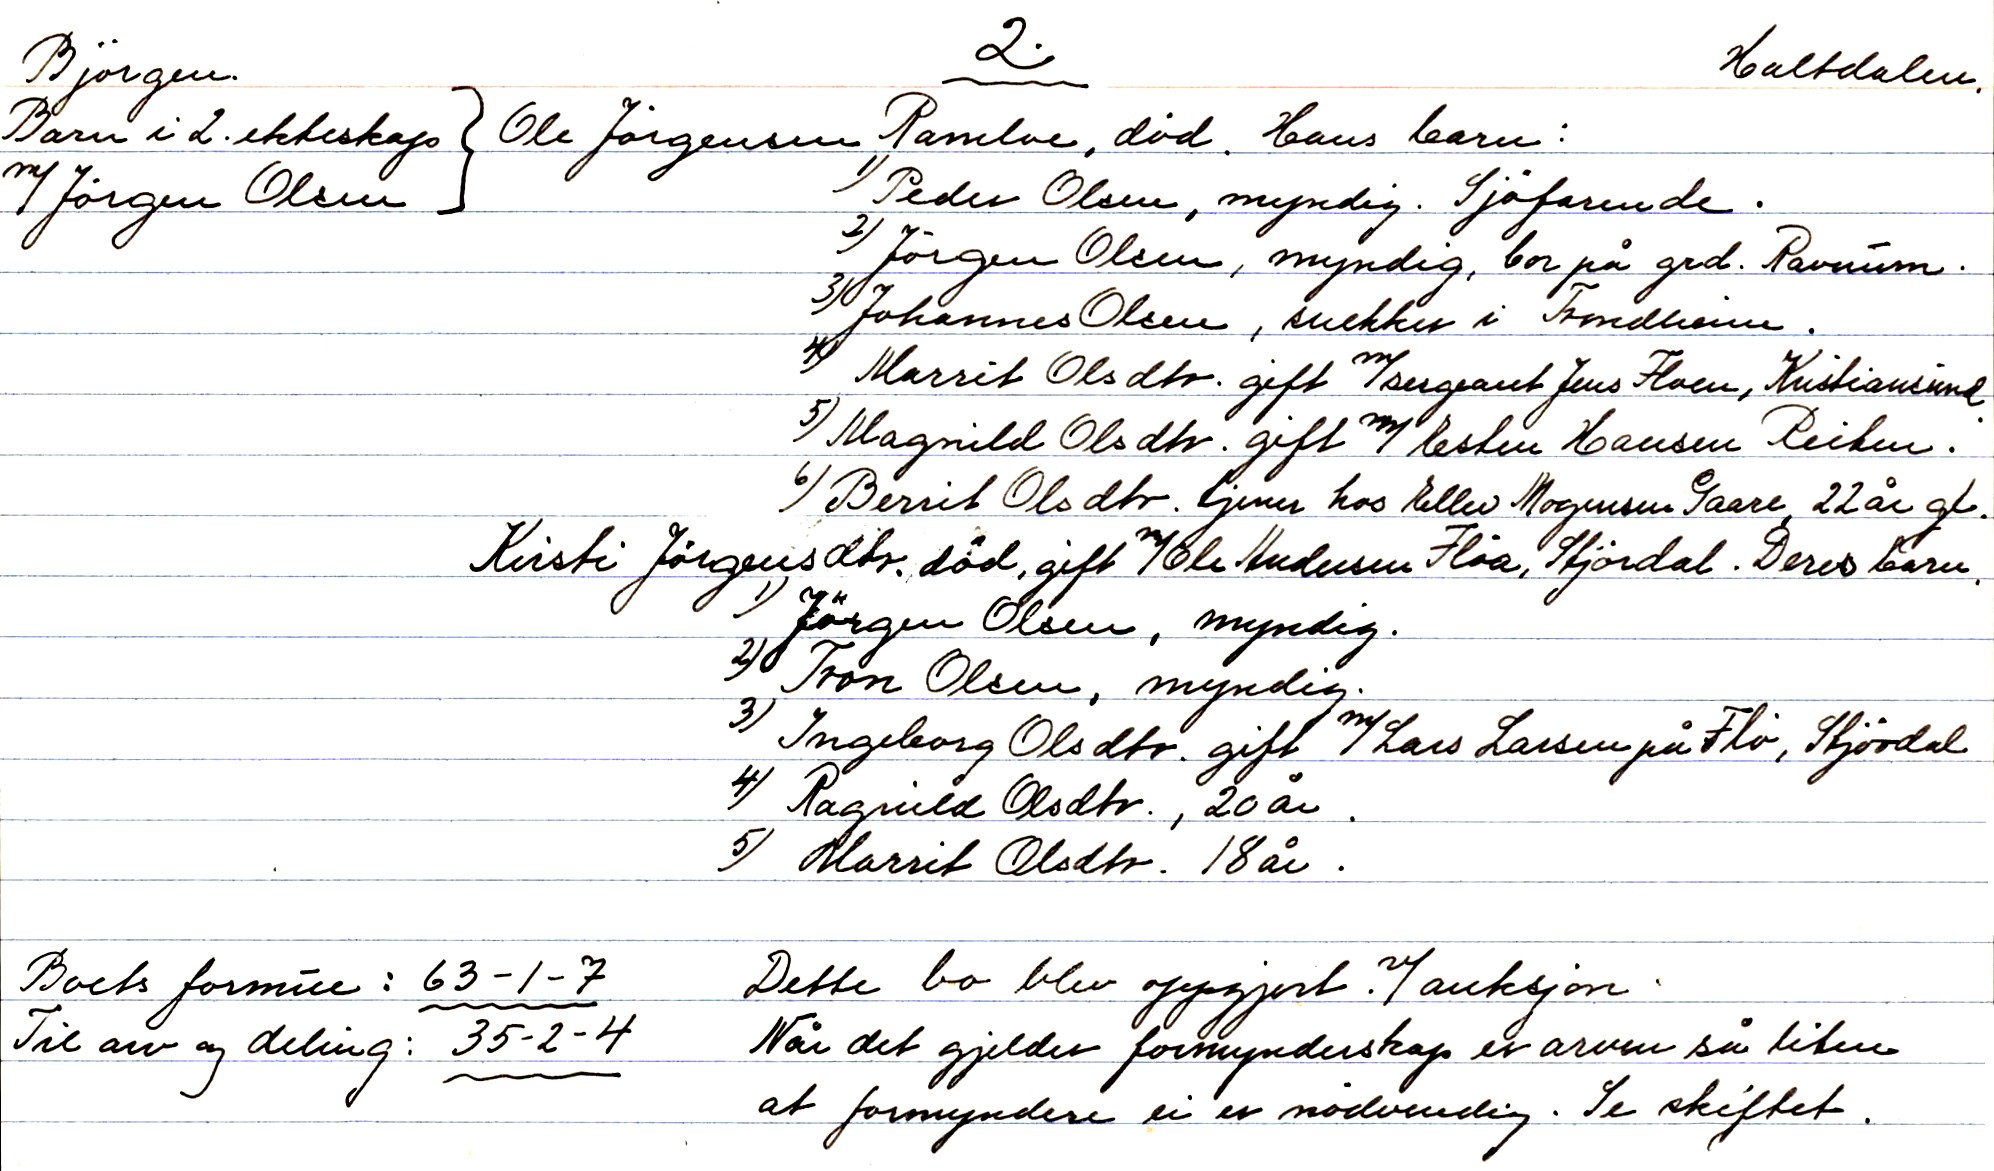 Björgen. 2. Haltdalen.
Barn i 2. ekteskap } Ole Jörgensen Ramloe, död. Hans barn:
m/ Jörgen Olsen 1) Peder Olsen, myndig. Sjöfarende.
2) Jörgen Olsen, myndig, bor på grd. Ravnum.
3) Johannes Olsen, snekker i Trondheim.
4) Marrit Olsdtr. gift m/ sergeant Jens Floen, Kristiansund.
5) Magnild Olsdtr. gift m/ Esten Hansen Reiten.
6) Berrit Olsdtr. tjener hos Ellev Mogensen Gaare, 22 år gl.
Kirsti Jörgensdtr. död, gift m/ Ole Andersen Flöa, Stjördal. Deres barn.
1) Jörgen Olsen, myndig.
2) Tron Olsen, myndig.
3) Ingeborg Olsdtr. gift m/ Lars Larsen på Flö, Stjördal
4) Ragnild Olsdtr., 20 år.
5) Marrit Olsdtr. 18 år.
Boets formue: 63-1-7 Dette bo blev oppgjort v/ auksjon.
Til arv og deling: 35-2-4 Når det gjelder formynderskap er arven så liten
at formyndere ei er nödvendig. Se skiftet.